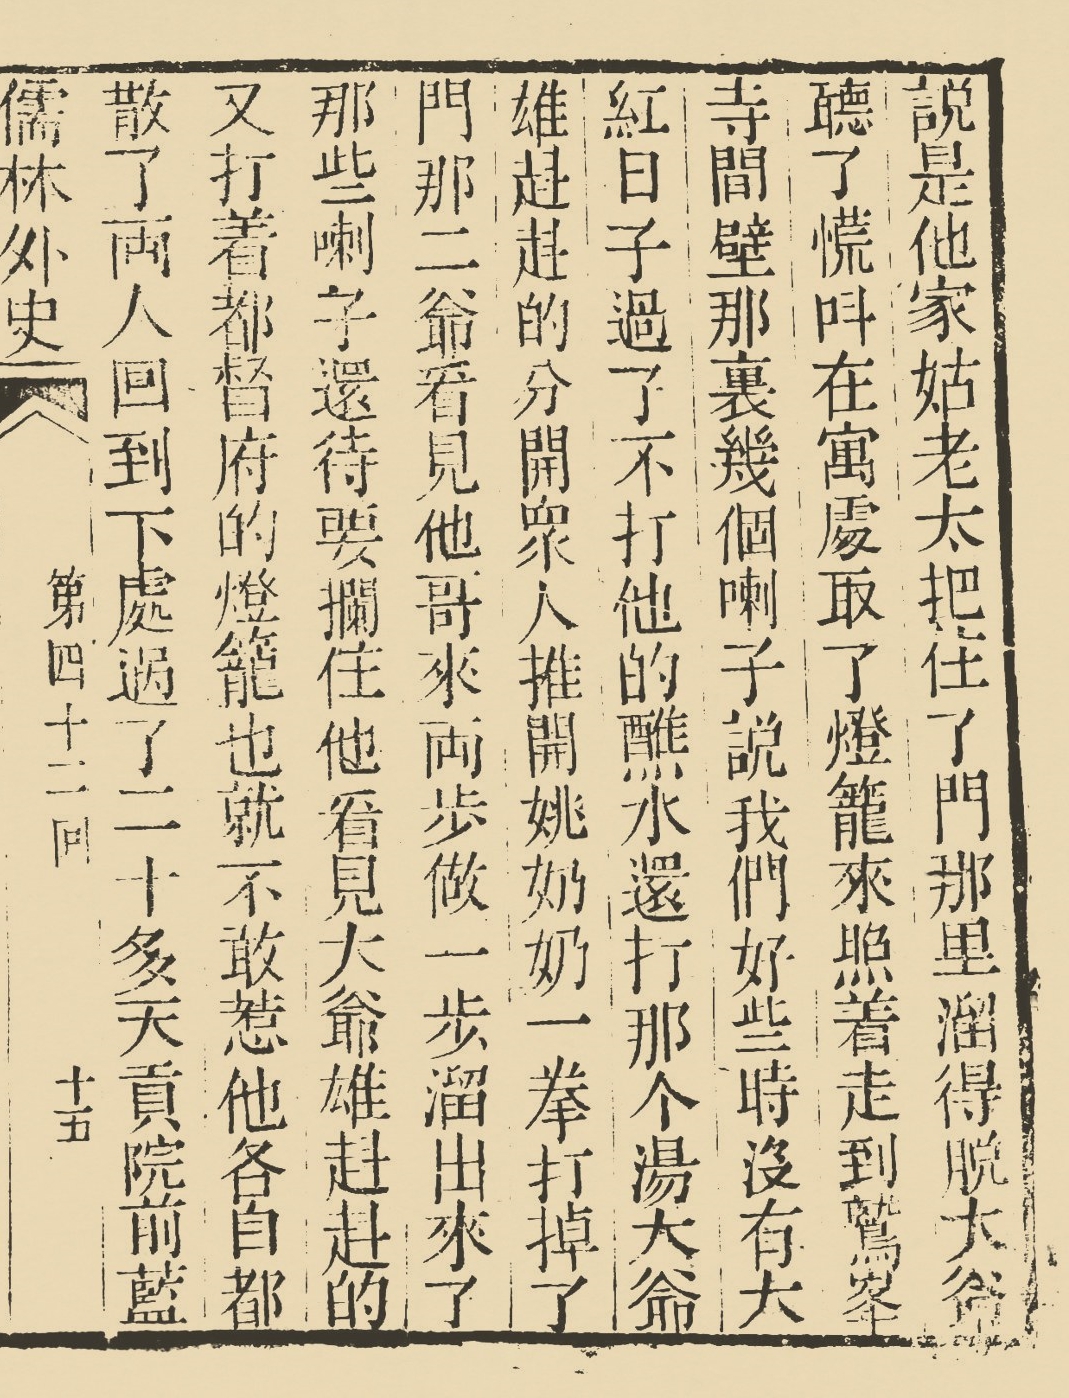 説是他家姑老太把住了門那里溜得脱大爺
聽了慌呌在寓處取了燈籠來照着走到鷲峯
寺間壁那裏幾個喇子説我們好些時没有大
紅日子過了不打他的醮水還打那个湯大爺
雄赳赳的分開衆人推開姚奶奶一拳打掉了
門那二爺看見他哥來両步做一步溜出來了
那些喇子還待要攔住他看見大爺雄赳赳的
又打着都督府的燈籠也就不敢惹他各自都
散了両人回到下處過了二十多天貢院前藍
儒林外史
第四十二回
十五